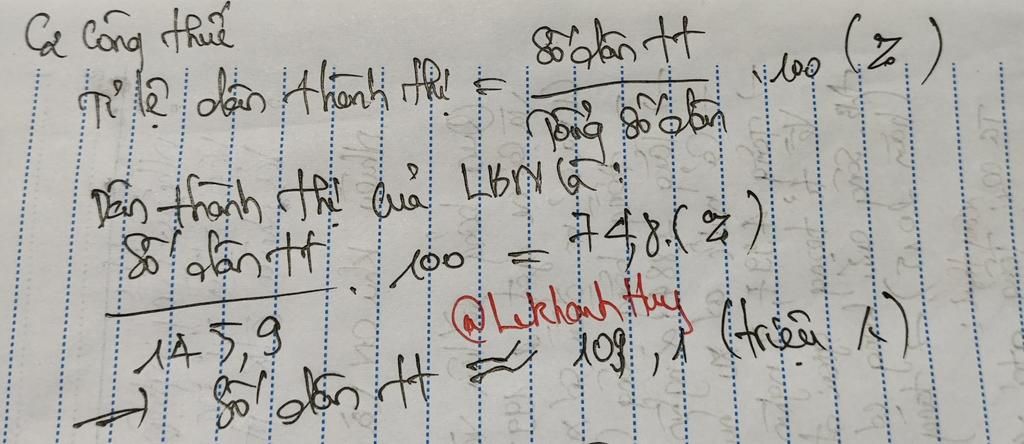 Có Công thức
Tỉ lệ dân thành thị = Số dân tt / Tổng số dân . 100 (%)
Dân thành thị của LBN là:
Số dân tt / 145,9 . 100 = 74,8. (%)
@Lekhanh Huy
→ Số dân tt ≈ 109,1 (triệu /.)